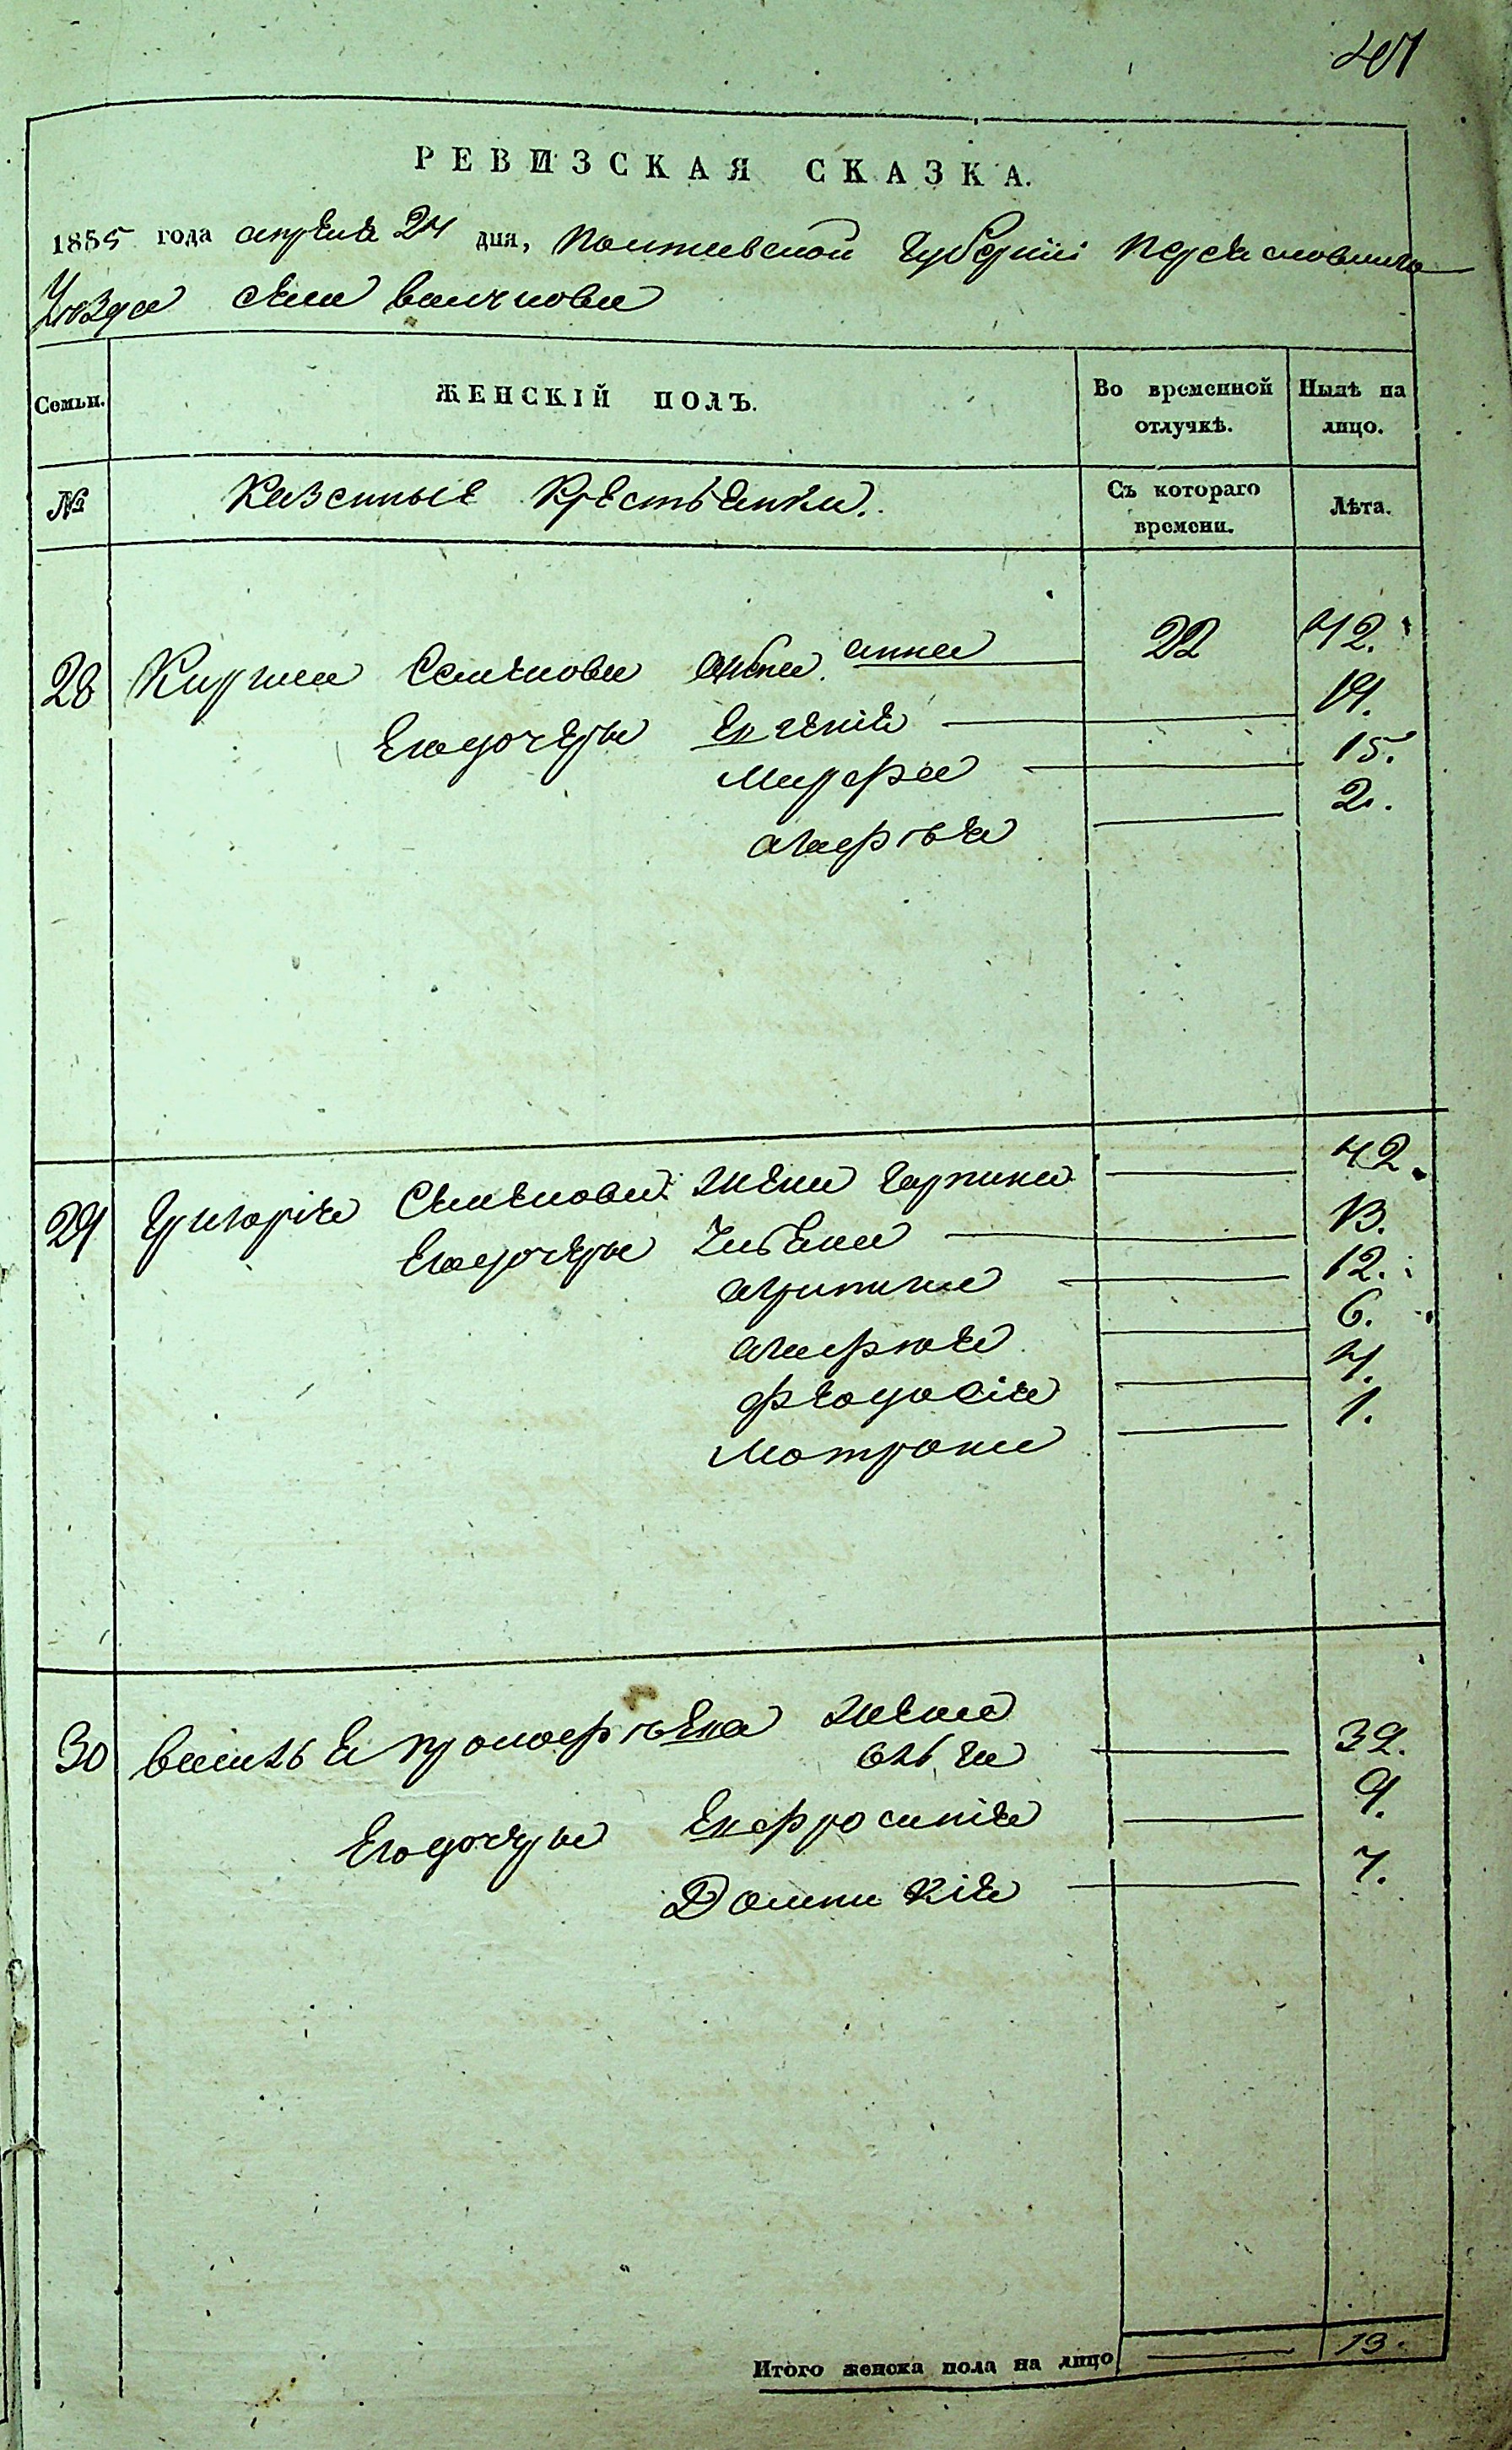 РЕВИЗСКАЯ СКАЗКА.
1855 года апреля 24 дня, Полтавской Губернии Переясловского
Уезда села
Семьи.
ЖЕНСКІЙ ПОЛЪ.
Во временной отлучкѣ.
Нынѣ на лицо.
№
Казенные Крестьянки.
Съ котораго времени.
Лѣта.
28 Семенова жена анна 22 42.
Его дочери Евгенія 19.
Марфа 15.
2.
29 Григорія Семенова жена Гарпина 42.
Его дочери 13.
агрипина 12.
6.
Феодосія 4.
Мотрона 1.
30 Василья жена
Ольга 39.
Его дочери Евфросинія 9.
Домникія 7.
Итого женска пола на лицо 13.